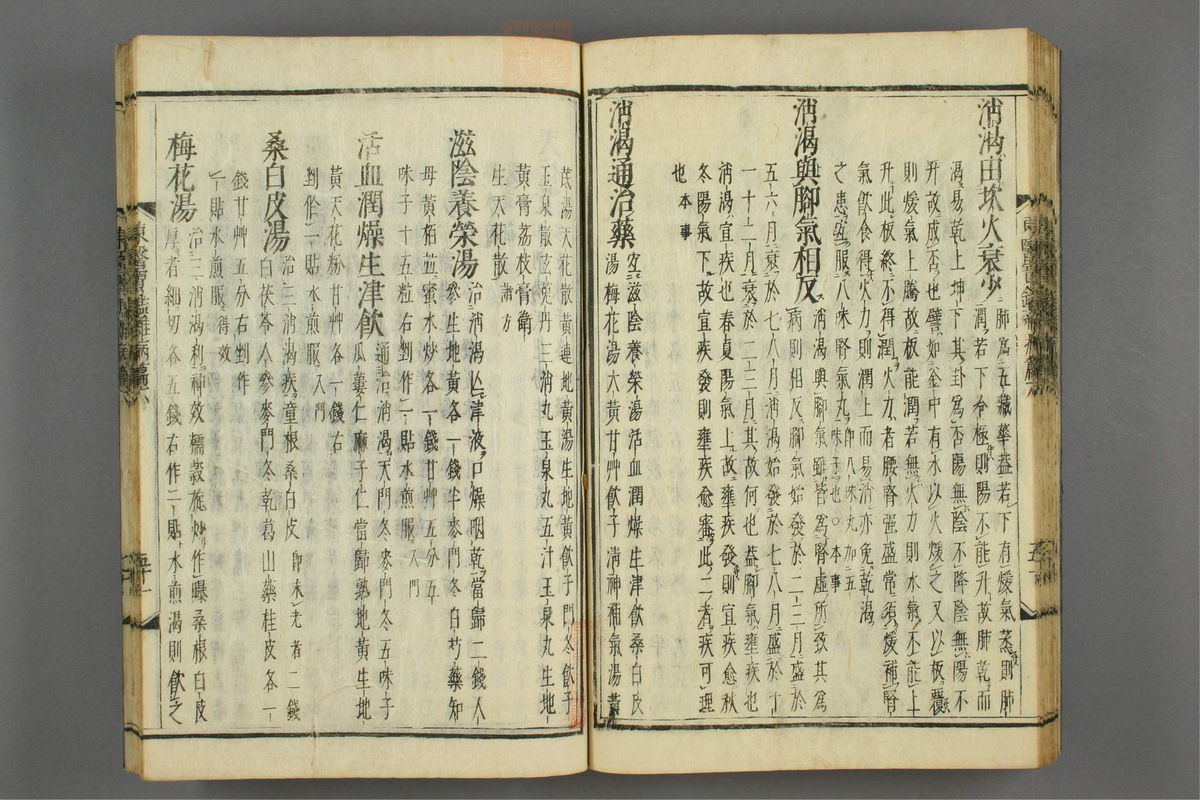 消渴由坎火衰少 肺爲五藏華盖若下有煖氣蒸則肺
潤若下冷極則陽不能升故肺乾而
渴易乾上坤下其卦爲否陽無陰不降陰無陽不
升故成否也譬如釜中有水以火煖之又以板覆
則煖氣上騰故板能潤若無火力則水氣不能上
升此板終不得潤火力者腰腎强盛常須煖補腎
氣飮食得火力則潤上而易消亦免乾渴
之患宜服八味腎氣丸 卽八味丸加五味子也○本事
消渴與脚氣相反 消渴與脚氣雖皆爲腎虛所致其爲
病則相反脚氣始發於二三月盛於
五六月衰於七八月消渴始發於七八月盛於十
一十二月衰於二三月其故何也盖脚氣壅疾也
消渴宜疾也春夏陽氣上故壅疾發則宜疾愈秋
冬陽氣下故宜疾發則壅疾愈審此二者疾可理
也 本事
消渴通治藥 宜滋陰養榮湯活血潤燥生津飮桑白皮
湯梅花湯大黃甘艸飮子淸神補氣湯黃
芪湯天花散黃連地黃湯生地黃飮子門冬飮子
玉泉散玄莬丹三消丸玉泉丸五汁玉泉丸生地
黃膏荔枝膏衛
生天花散 諸方
滋陰養榮湯 治消渴亡津液口燥咽乾當歸二錢人
參生地黃各一錢半麥門冬白芍藥知
母黃栢並蜜水炒各一錢甘艸五分五
味子十五粒右剉作一貼水煎服 入門
活血潤燥生津飮 通治消渴天門冬麥門冬五味子
瓜蔞仁麻子仁當歸熟地黃生地
黃天花粉甘艸各一錢右
剉作一貼水煎服 入門
桑白皮湯 治三消渴疾童根桑白皮 卽未老者 二錢
白茯苓人參麥門冬乾葛山藥桂皮各一
錢甘艸五分右剉作
一貼水煎服 得效
梅花湯 治三消渴利神效糯穀旋炒作爆桑根白皮
厚者細切各五錢右作一貼水煎渴則飮之